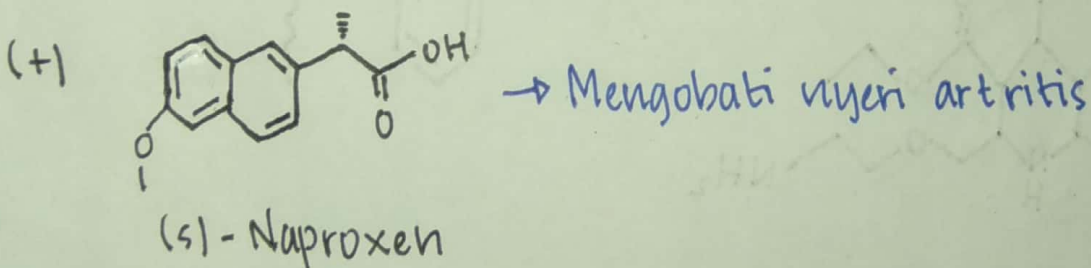 (+)
OH
O
O
→ Mengobati nyeri artritis
(s) - Naproxen